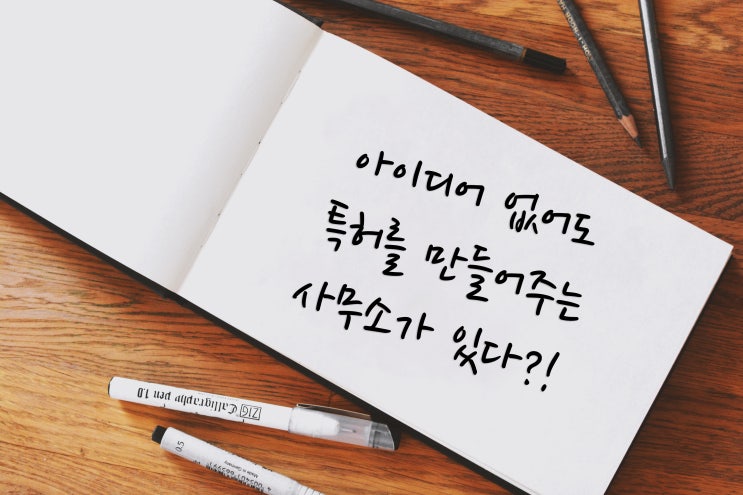 아이디어 없어도
특허를 만들어주는
사무소가 있다?!
ZIG Calligraphy pen 1.0
0.5
Made in Germany